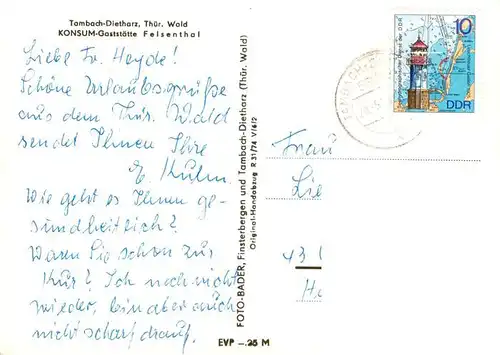 Tambach-Dietharz, Thür. Wald
KONSUM-Gaststätte Felsenthal
Liebe Fr. Heyde!
Schöne Urlaubsgrüße
aus dem Thür. Wald
sendet Ihnen Ihre
E. Kulm.
Wie geht es Ihnen ge-
sundheitlich?
Waren Sie schon zur
Kur? Ich noch nicht
wieder, bin aber auch
nicht scharf drauf.
EVP -.25 M
FOTO-BADER, Finsterbergen und Tambach-Dietharz (Thür. Wald)
Original-Handabzug R 31/74 V/6/2
10
DDR
Frau
Lie
43
He